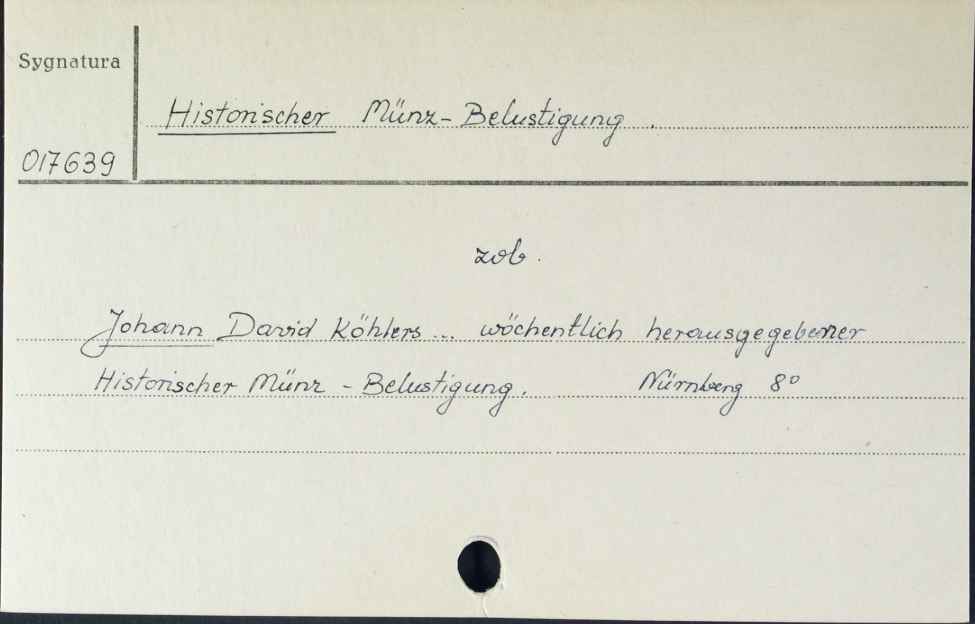 Sygnatura
Historischer Münz-Belustigung.
017639
zob.
Johann David Köhlers... wöchentlich herausgegebener
Historischer Münz-Belustigung. Nürnberg 8°